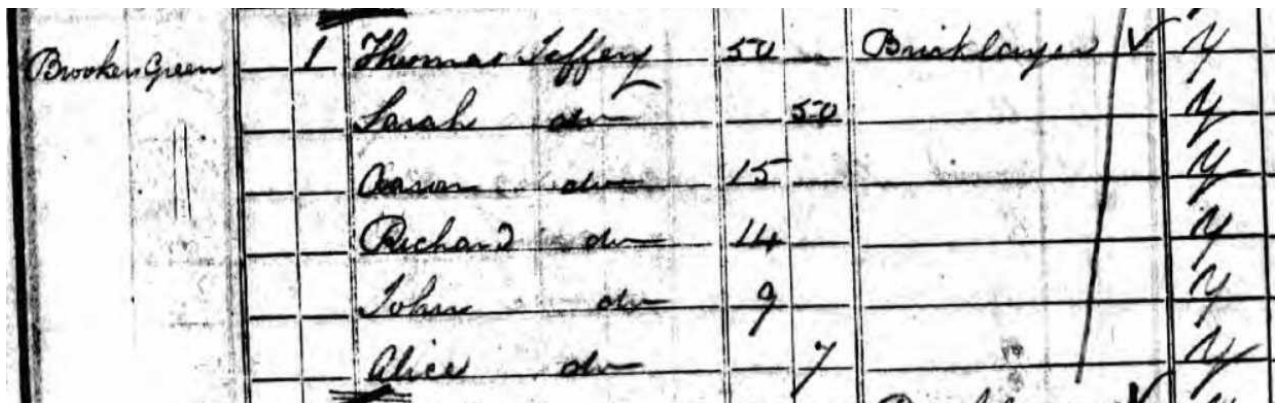 Brooken Green 1 Thomas Jeffery 50 Bricklayer Y
Sarah do 50 Y
Aaron do 15 Y
Richard do 14 Y
John do 9 Y
Alice do 7 Y